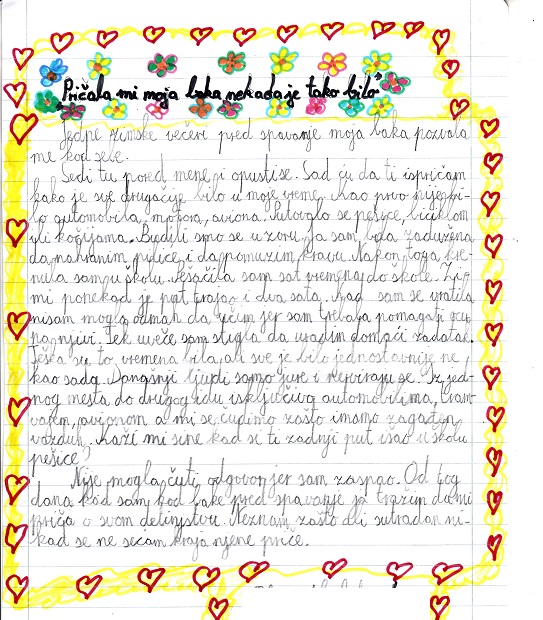 "Pričala mi moja baka nekada je tako bilo"
Jedne zimske večeri pred spavanje moja baka pozvala
me kod sebe.
Sedi tu pored mene i opusti se. Sad ću da ti ispričam
kako je sve drugačije bilo u moje vreme. Kao prvo nije bi-
lo automobila, motora, aviona. Putovalo se pešice, biciklom
ili kočijama. Budili smo se u zoru. Ja sam bila zadužena
da nahranim piliće i da pomuzem kravu. Nakon toga kre-
nula sam u školu. Pešačila sam sat vremena do škole. Zi-
mi ponekad je put trajao i dva sata. Kad sam se vratila
nisam mogla odmah da učim jer sam trebala pomagati ocu
na njivi. Tek uveče sam stigla da uradim domaći zadatak.
Teška su to vremena bila, ali sve je bilo jednostavnije ne
kao sada. Današnji ljudi samo jure i nerviraju se. Iz jed-
nog mesta do drugog idu isključivo automobilima, tram-
vajem, avionom a mi se čudimo zašto imamo zagađen
vazduh. Kaži mi sine kad si ti zadnji put išao u školu
pešice?
Nije mogla čuti odgovor jer sam zaspao. Od tog
dana kad sam kod bake pred spavanje ja tražim da mi
priča o svom detinjstvu. Neznam zašto ali sutradan ni-
kad se ne sećam kraja njene priče.